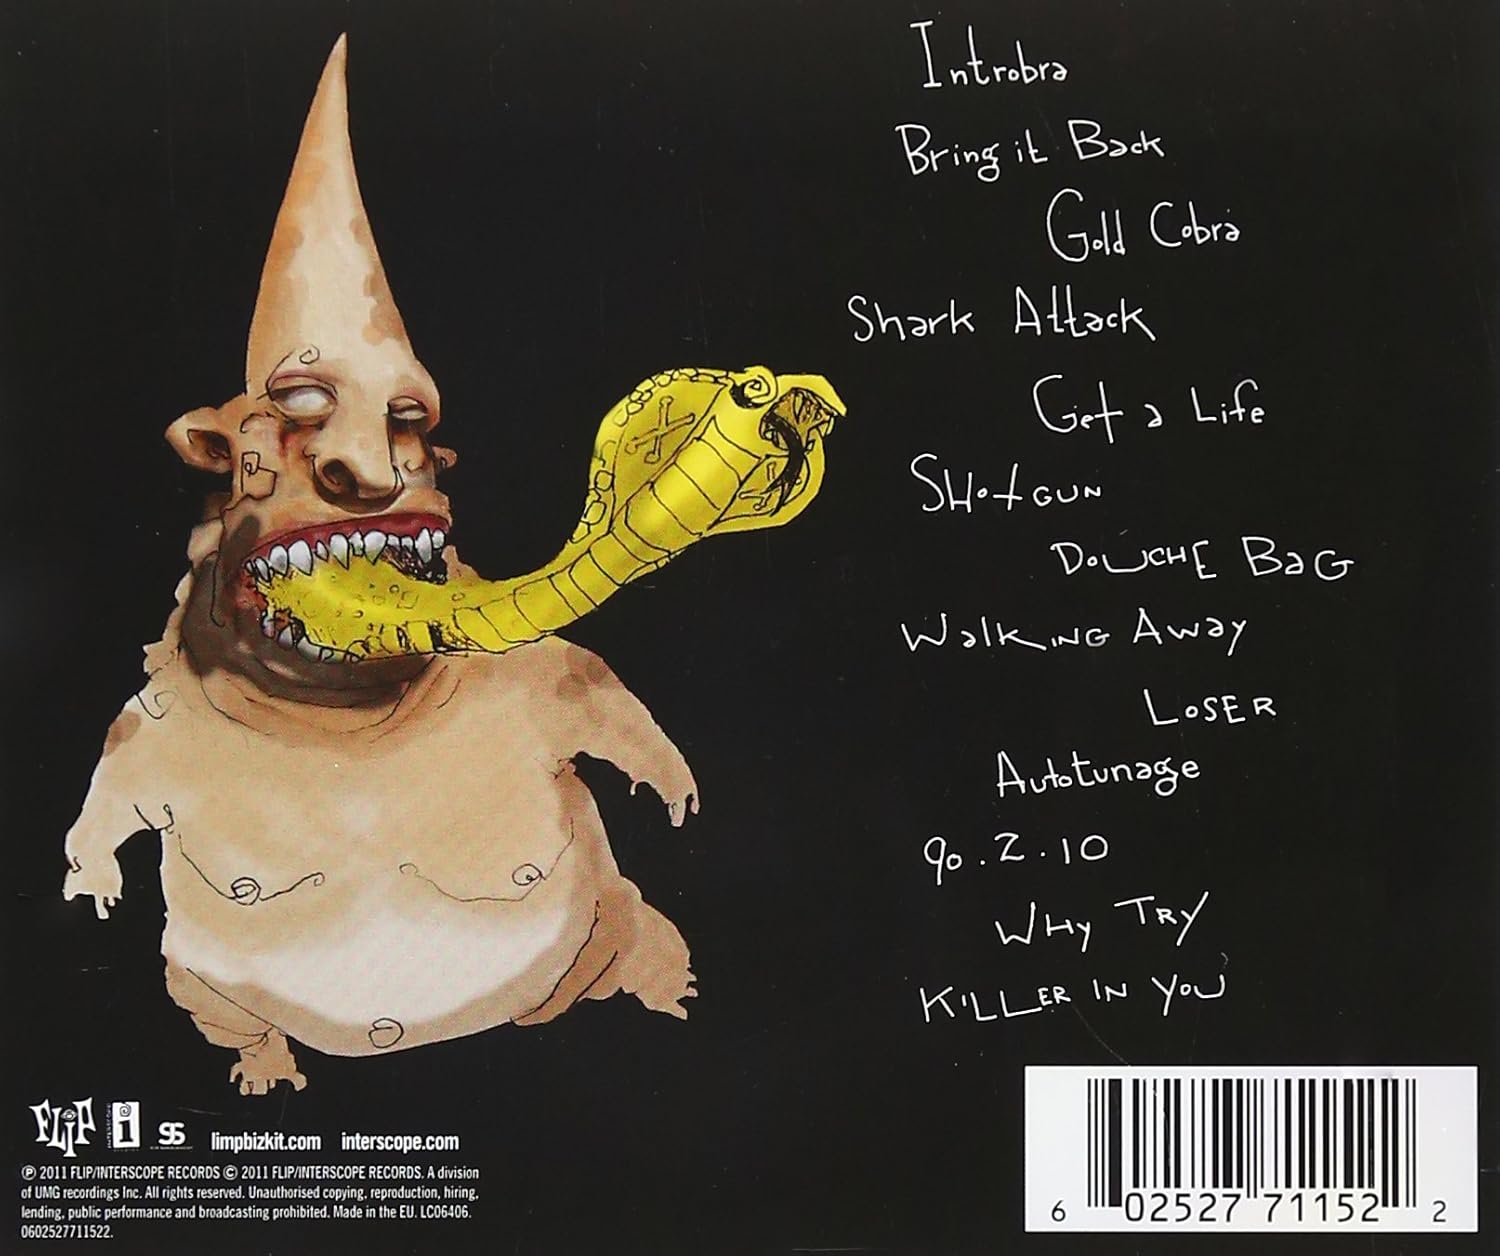 Introbra
Bring it Back
Gold Cobra
Shark Attack
Get a Life
SHotGUN
DOUCHE BaG
WalkING Away
LOSER
Autotunage
90.2.10
WHy TRY
KILLER IN YOU
FLiP
i
limpbizkit.com interscope.com
℗ 2011 FLIP/INTERSCOPE RECORDS © 2011 FLIP/INTERSCOPE RECORDS. A division
of UMG recordings Inc. All rights reserved. Unauthorised copying, reproduction, hiring,
lending, public performance and broadcasting prohibited. Made in the EU. LC06406.
0602527711522.
6 02527 71152 2